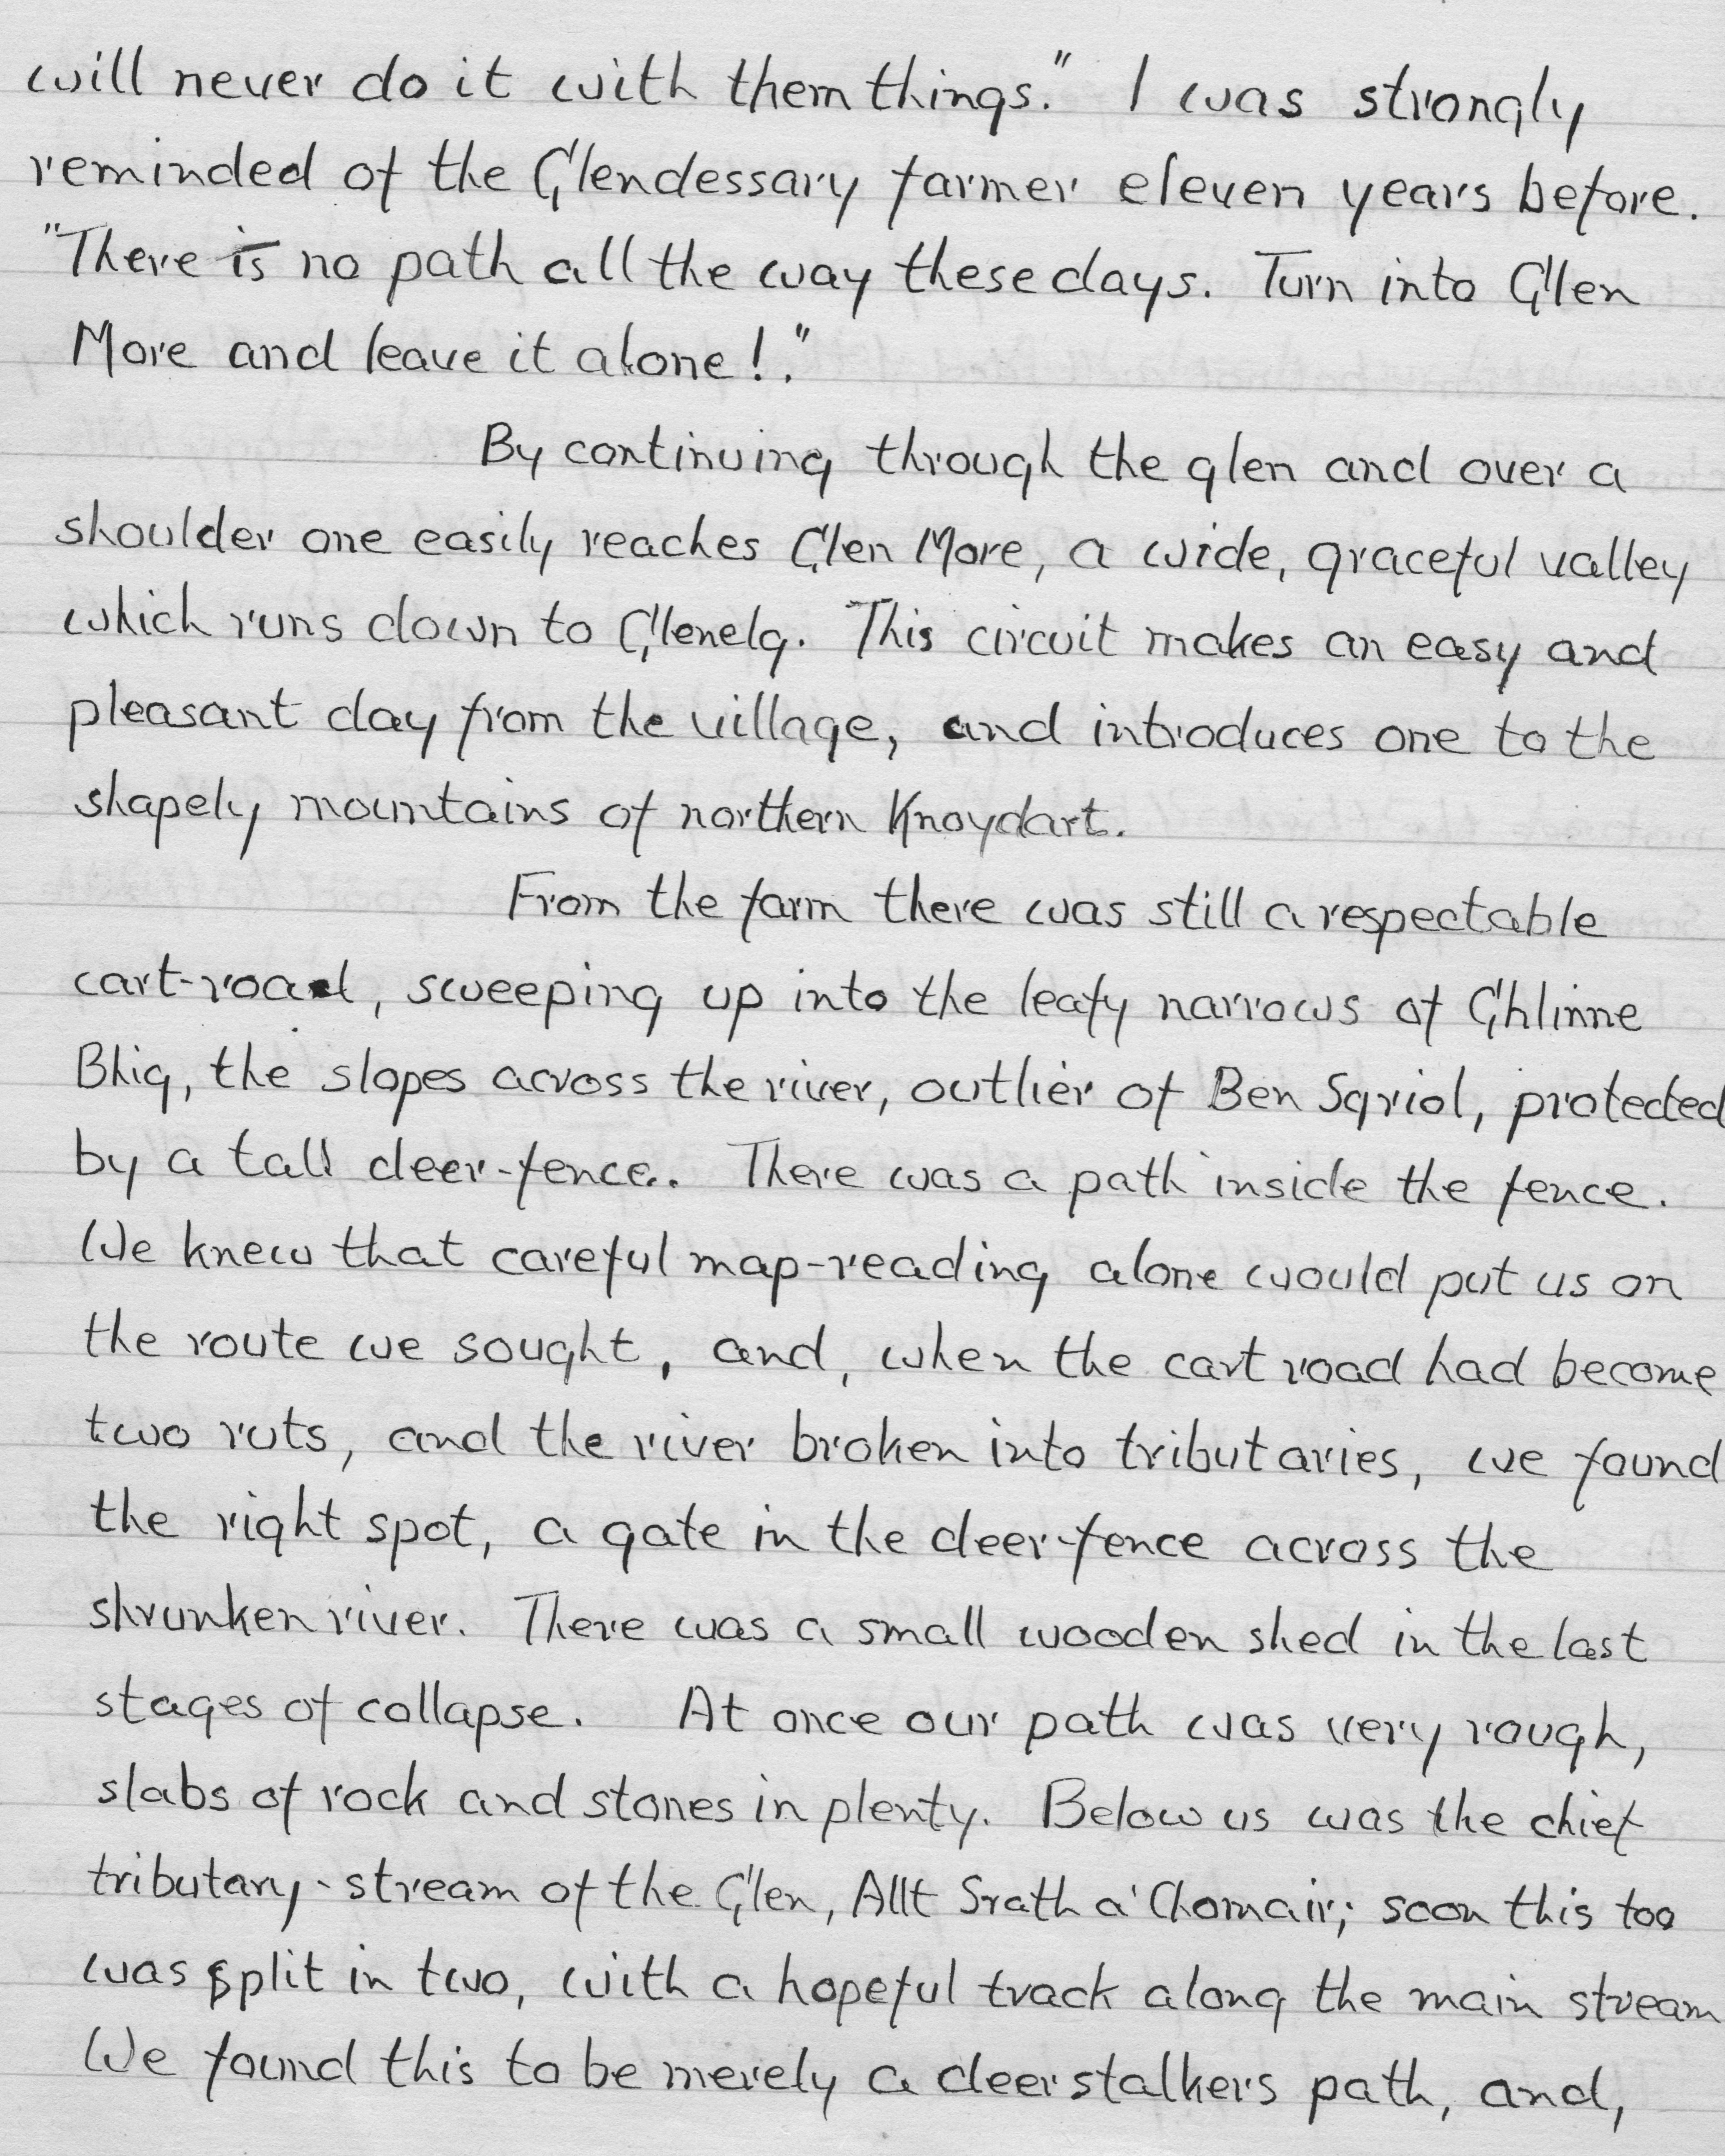 will never do it with them things." I was strongly
reminded of the Glendessary farmer eleven years before.
"There is no path all the way these days. Turn into Glen
More and leave it alone!."
By continuing through the glen and over a
shoulder one easily reaches Glen More, a wide, graceful valley
which runs down to Glenelg. This circuit makes an easy and
pleasant day from the village, and introduces one to the
shapely mountains of northern Knoydart.
From the farm there was still a respectable
cart-road, sweeping up into the leafy narrows of Ghlinne
Bhig, the slopes across the river, outlier of Ben Sgriol, protected
by a tall deer-fence.. There was a path inside the fence.
We knew that careful map-reading alone would put us on
the route we sought, and, when the cart road had become
two ruts, and the river broken into tributaries, we found
the right spot, a gate in the deer-fence across the
shrunken river. There was a small wooden shed in the last
stages of collapse. At once our path was very rough,
slabs of rock and stones in plenty. Below us was the chief
tributary-stream of the Glen, Allt Srath a' Chomair; soon this too
was split in two, with a hopeful track along the main stream
We found this to be merely a deerstalkers path, and,